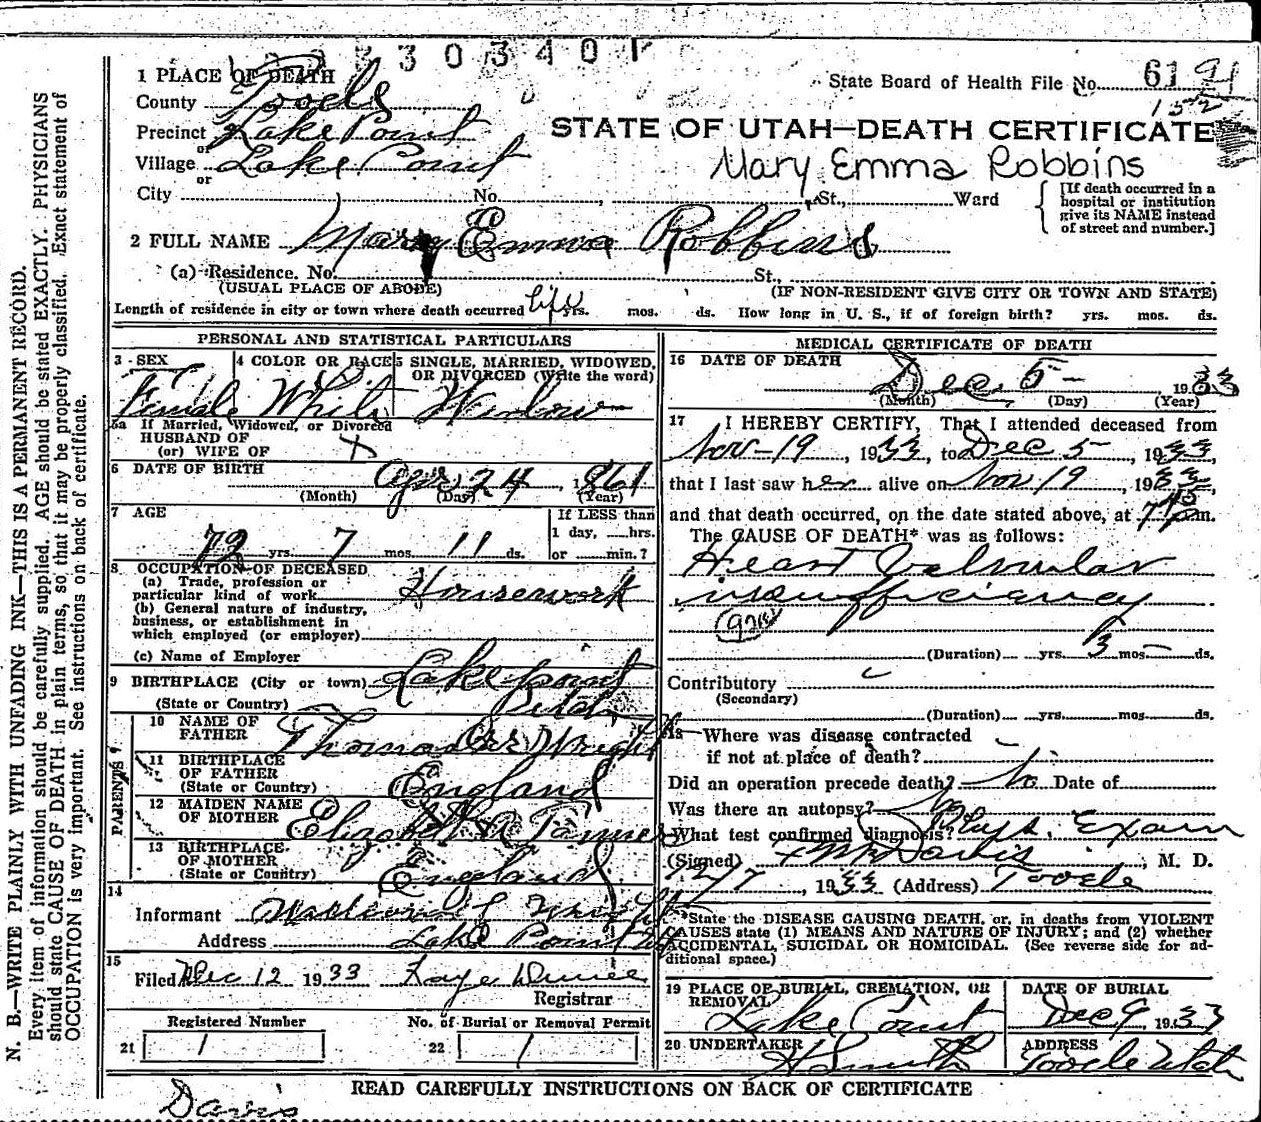 3303401
State Board of Health File No. 61 91
1 PLACE OF DEATH
County Tooele
Precinct Lake Point
or
Village Lake Point
or
City No. , St., Ward
STATE OF UTAH—DEATH CERTIFICATE
Mary Emma Robbins
[If death occurred in a
hospital or institution
give its NAME instead
of street and number.]
2 FULL NAME Mary Emma Robbins
(a) Residence. No. St.,
(USUAL PLACE OF ABODE) (IF NON-RESIDENT GIVE CITY OR TOWN AND STATE)
Length of residence in city or town where death occurred life yrs. mos. ds. How long in U. S., if of foreign birth? yrs. mos. ds.
PERSONAL AND STATISTICAL PARTICULARS
3 SEX 4 COLOR OR RACE 5 SINGLE, MARRIED, WIDOWED,
OR DIVORCED (Write the word)
Female White Widow
5a If Married, Widowed, or Divorced
HUSBAND OF
(or) WIFE OF X
6 DATE OF BIRTH Apr 24, 1861
(Month) (Day) (Year)
7 AGE If LESS than
1 day, hrs.
72 yrs. 7 mos. 11 ds. or min.?
8 OCCUPATION OF DECEASED
(a) Trade, profession or
particular kind of work Housework
(b) General nature of industry,
business, or establishment in
which employed (or employer)
(c) Name of Employer
9 BIRTHPLACE (City or town) Lake point
(State or Country) Utah
PARENTS
10 NAME OF
FATHER Thomas Wright
11 BIRTHPLACE
OF FATHER
(State or Country) England
12 MAIDEN NAME
OF MOTHER Elizabeth A Tanner
13 BIRTHPLACE
OF MOTHER
(State or Country) England
14
Informant William Wright
Address Lake Point
15
Filed Dec 12 1933 Kaye
Registrar
Registered Number No. of Burial or Removal Permit
21 1 22 1
MEDICAL CERTIFICATE OF DEATH
16 DATE OF DEATH
Dec. 5- 1933
(Month) (Day) (Year)
17 I HEREBY CERTIFY, That I attended deceased from
Nov-19, 1933, to Dec 5-, 1933,
that I last saw her alive on Nov 19, 1933,
and that death occurred, on the date stated above, at 7 p m.
The CAUSE OF DEATH* was as follows:
Heart Valvular
insufficiency
(Duration) yrs. 3 mos. - ds.
Contributory
(Secondary)
(Duration) yrs. mos. ds.
18 Where was disease contracted
if not at place of death?
Did an operation precede death? No Date of
Was there an autopsy? No
What test confirmed diagnosis? Phys. Exam
(Signed) Davis, M. D.
12/7, 1933 (Address) Tooele
*State the DISEASE CAUSING DEATH, or, in deaths from VIOLENT
CAUSES state (1) MEANS AND NATURE OF INJURY; and (2) whether
ACCIDENTAL, SUICIDAL OR HOMICIDAL. (See reverse side for ad-
ditional space.)
19 PLACE OF BURIAL, CREMATION, OR
REMOVAL
Lake Point
DATE OF BURIAL
Dec 9 1933
20 UNDERTAKER
H Smith
ADDRESS
Tooele Utah
READ CAREFULLY INSTRUCTIONS ON BACK OF CERTIFICATE
Davis
N. B.—WRITE PLAINLY WITH UNFADING INK—THIS IS A PERMANENT RECORD.
Every item of information should be carefully supplied. AGE should be stated EXACTLY. PHYSICIANS
should state CAUSE OF DEATH in plain terms, so that it may be properly classified. Exact statement of
OCCUPATION is very important. See instructions on back of certificate.